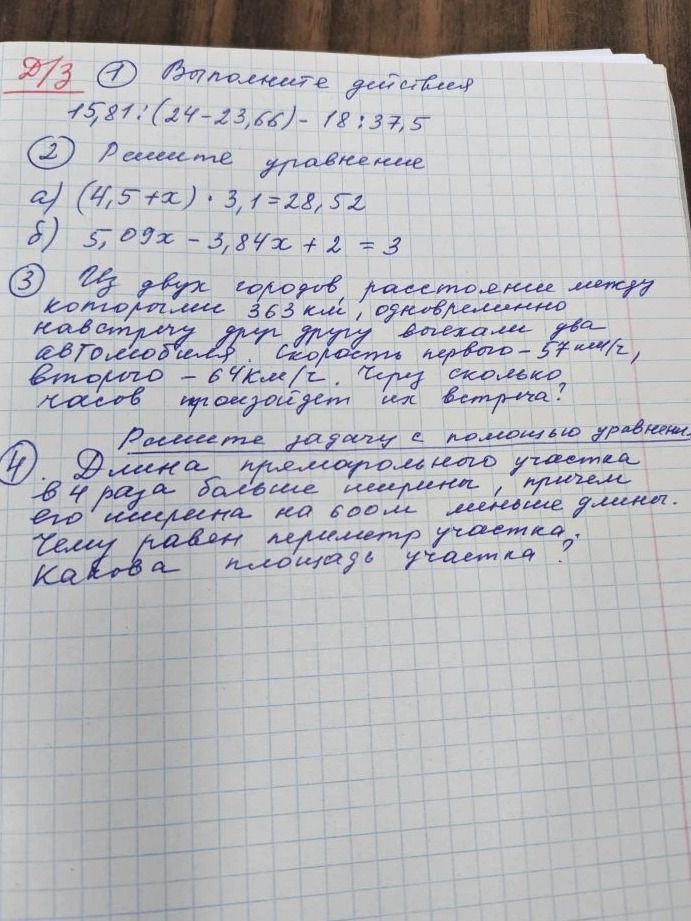 Д/З ① Выполните действия
15,81:(24-23,66)-18:37,5
② Решите уравнение
а) (4,5+x)·3,1=28,52
б) 5,09x-3,84x+2=3
③ Из двух городов, расстояние между
которыми 363 км, одновременно
навстречу друг другу выехали два
автомобиля. Скорость первого – 57 км/ч,
второго – 64 км/ч. Через сколько
часов произойдет их встреча?
Решите задачу с помощью уравнени
④. Длина прямоугольного участка
в 4 раза больше ширины, причем
его ширина на 600м меньше длины.
Чему равен периметр участка.
Какова площадь участка?